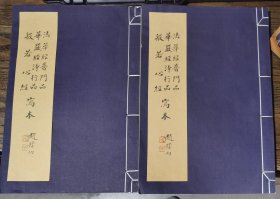 法華經普門品
華嚴經淨行品
般若心經
寫本
趙樸初
法華經普門品
華嚴經淨行品
般若心經
寫本
趙樸初